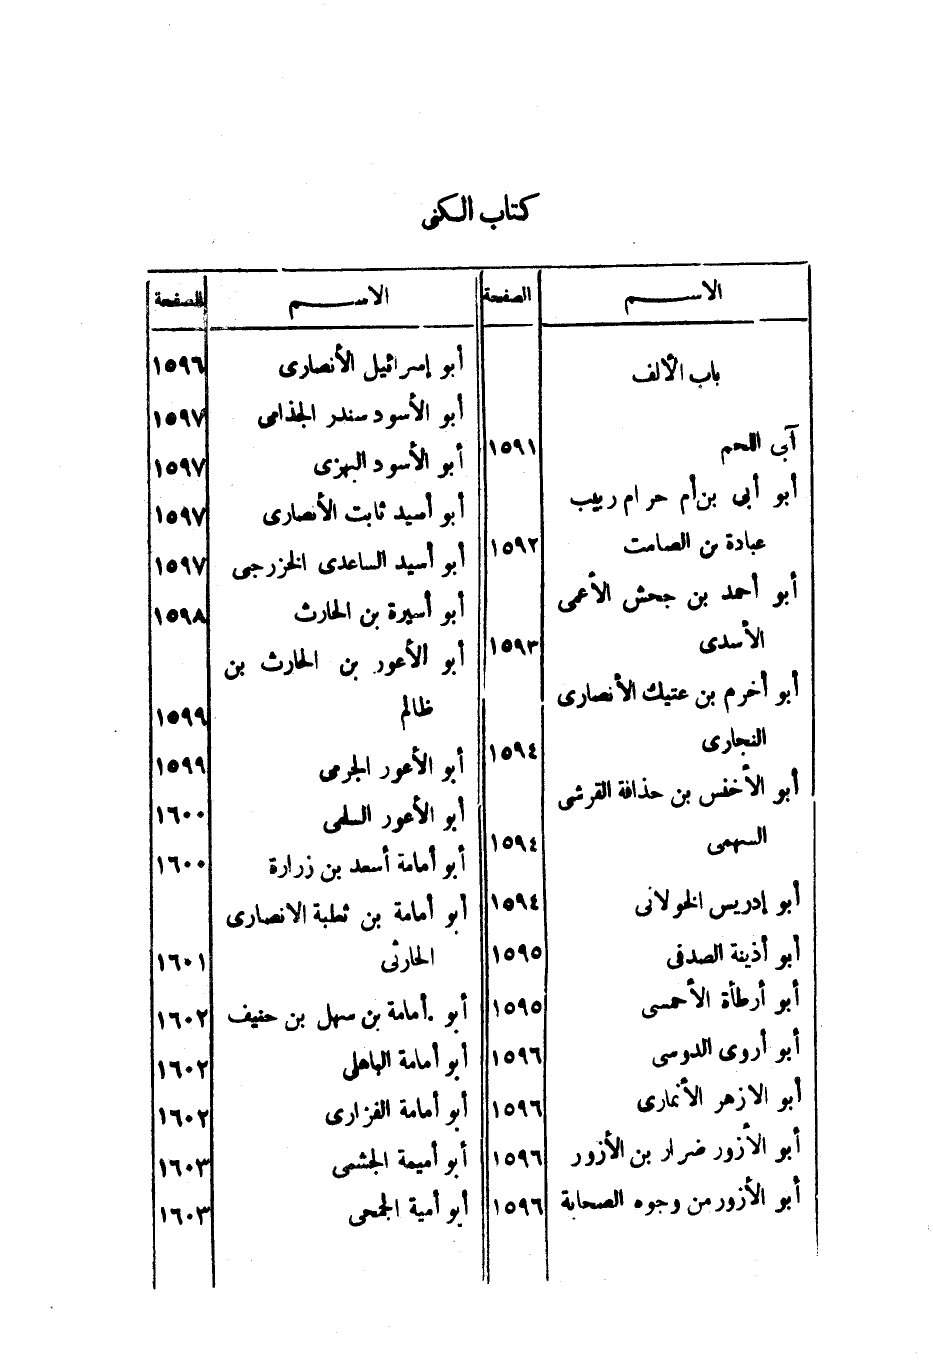 كتاب الكنى
الاســـم الصفحة
باب الألف
آبى اللحم ١٥٩١
أبو أبي بن أم حرام ربيب
عبادة بن الصامت ١٥٩٢
أبو أحمد بن جحش الأعمى
الأسدى ١٥٩٣
أبو أخرم بن عتيك الأنصارى
النجارى ١٥٩٤
أبو الأخفس بن حذافة القرشى
السهمى ١٥٩٤
أبو إدريس الخولانى ١٥٩٤
أبو أذينة الصدفى ١٥٩٥
أبو أرطأة الأحمسى ١٥٩٥
أبو أروى الدوسى ١٥٩٦
أبو الازهر الأنمارى ١٥٩٦
أبو الأزور ضرار بن الأزور ١٥٩٦
أبو الأزور من وجوه الصحابة ١٥٩٦
الاســـم الصفحة
أبو إسرائيل الأنصارى ١٥٩٦
أبو الأسود سندر الجذامى ١٥٩٧
أبو الأسود البهزى ١٥٩٧
أبو أسيد ثابت الأنصارى ١٥٩٧
أبو أسيد الساعدى الخزرجى ١٥٩٧
أبو أسيرة بن الحارث ١٥٩٨
أبو الأعور بن الحارث بن
ظالم ١٥٩٩
أبو الأعور الجرمى ١٥٩٩
أبو الأعور السلمى ١٦٠٠
أبو أمامة أسعد بن زرارة ١٦٠٠
أبو أمامة بن ثعلبة الانصارى
الحارثى ١٦٠١
أبو أمامة بن سهل بن حنيف ١٦٠٢
أبو أمامة الباهلى ١٦٠٢
أبو أمامة الفزارى ١٦٠٢
أبو أميمة الجشمى ١٦٠٣
أبو أمية الجمحى ١٦٠٣